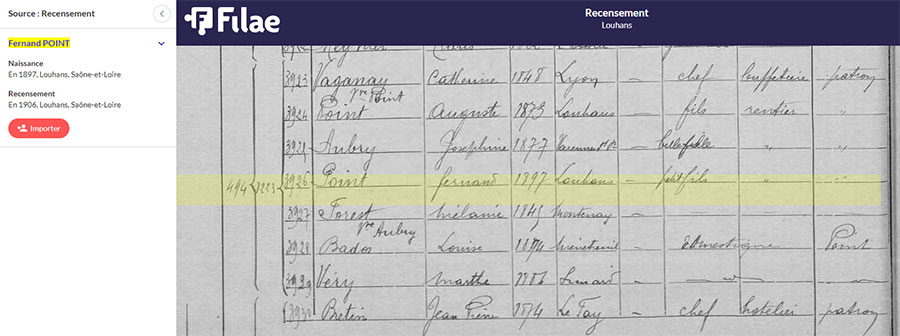 Source : Recensement
Fernand POINT
Naissance
En 1897, Louhans, Saône-et-Loire
Recensement
En 1906, Louhans, Saône-et-Loire
Importer
Filae
Recensement
Louhans
3923 Vaganay Catherine 1848 Lyon — chef buffetière patron
Vve Point
3924 Point Auguste 1873 Louhans — fils rentier "
Aubry Joséphine 1877 — belle fille " "
494 1223 3926 Point fernand 1897 Louhans — petit fils " "
3927 Forest mélanie
Vve Aubry
3928 Bados Louise — domestique Point
3929 Véry marthe Simard —
Bretin Jean Pierre 1874 Le Fay — chef hotelier patron